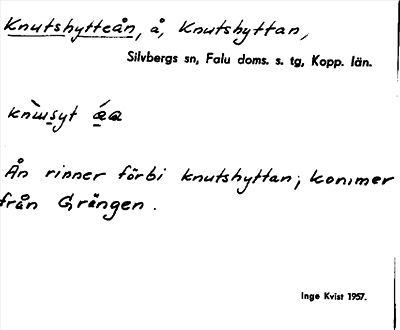 Knutshytteån, å, Knutshyttan,
Silvbergs sn, Falu doms. s. tg, Kopp. län.
Ån rinner förbi Knutshyttan; kommer
från Grängen.
Inge Kvist 1957.